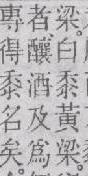 梁。白黍黃梁。
者、釀酒及爲
專得黍名矣。